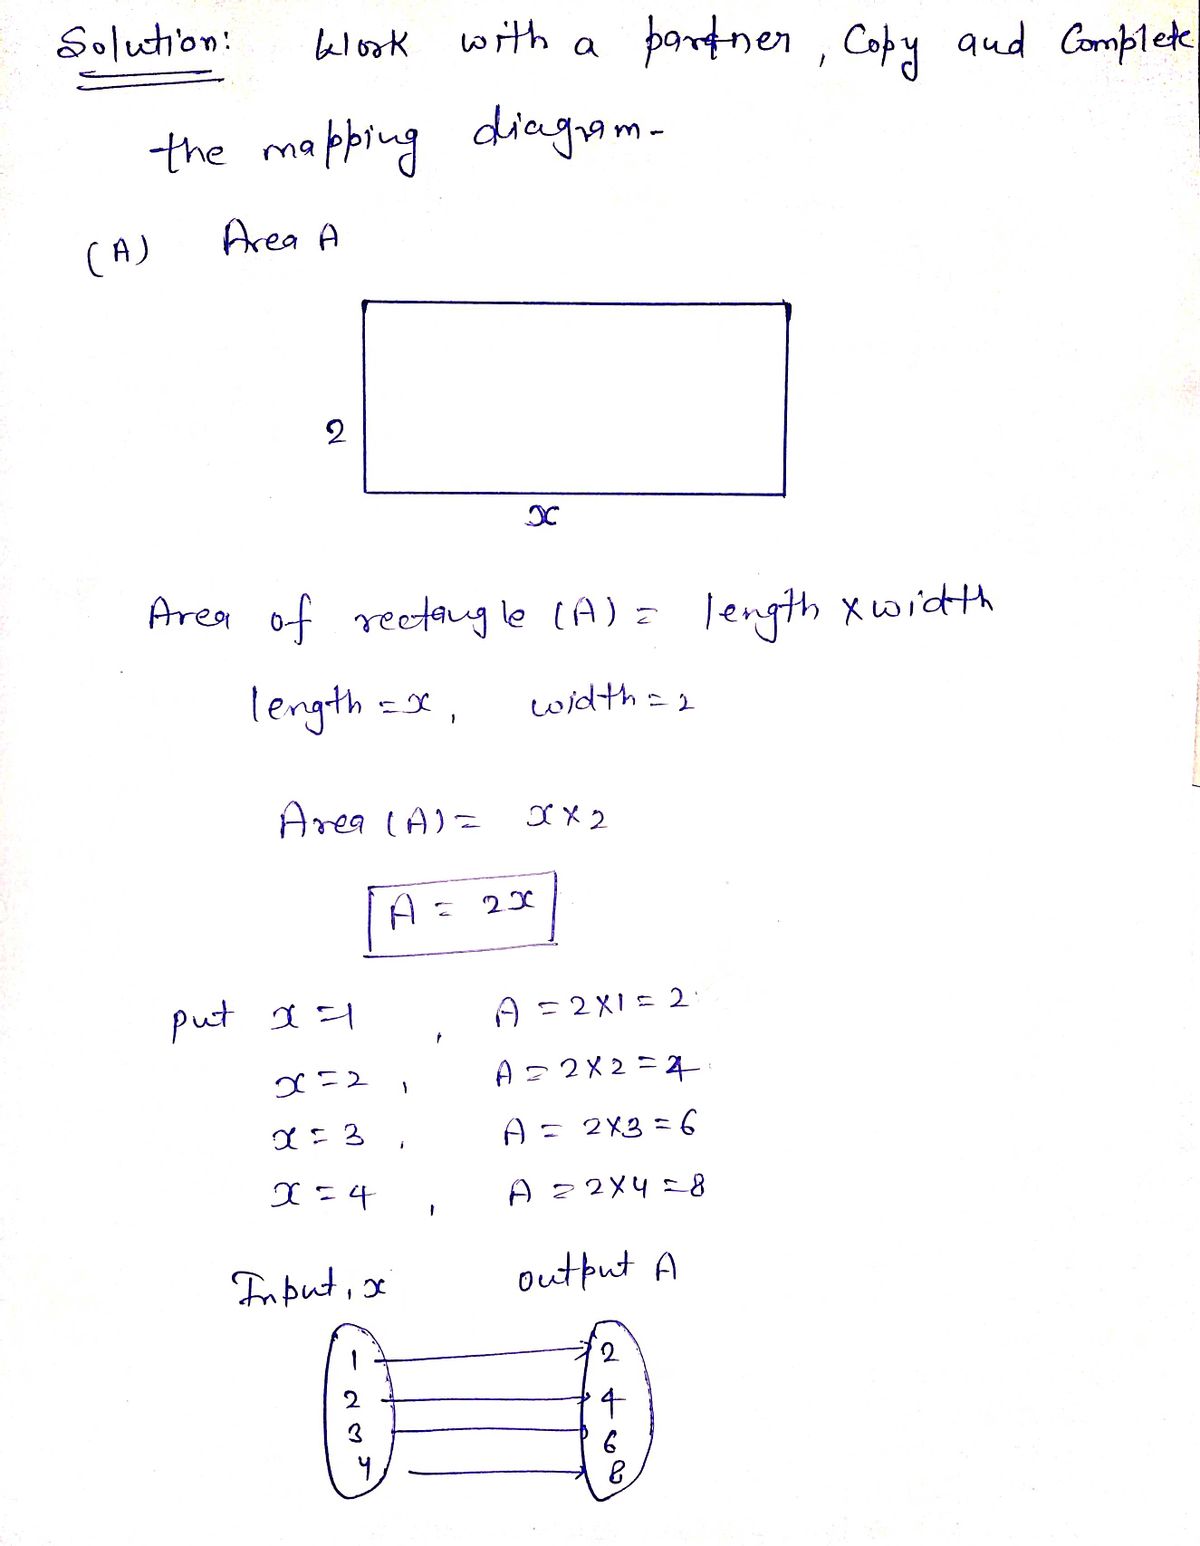 Solution: Work with a partner, Copy and Complete
the mapping diagram-
(A) Area A
2
x
Area of rectangle (A) = length x width
length = x, width = 2
Area (A) = x x 2
A = 2x
put x = 1, A = 2x1 = 2.
x = 2, A = 2x2 = 4.
x = 3, A = 2x3 = 6
x = 4, A = 2x4 = 8
Input, x output A
1 2
2 4
3 6
4 8